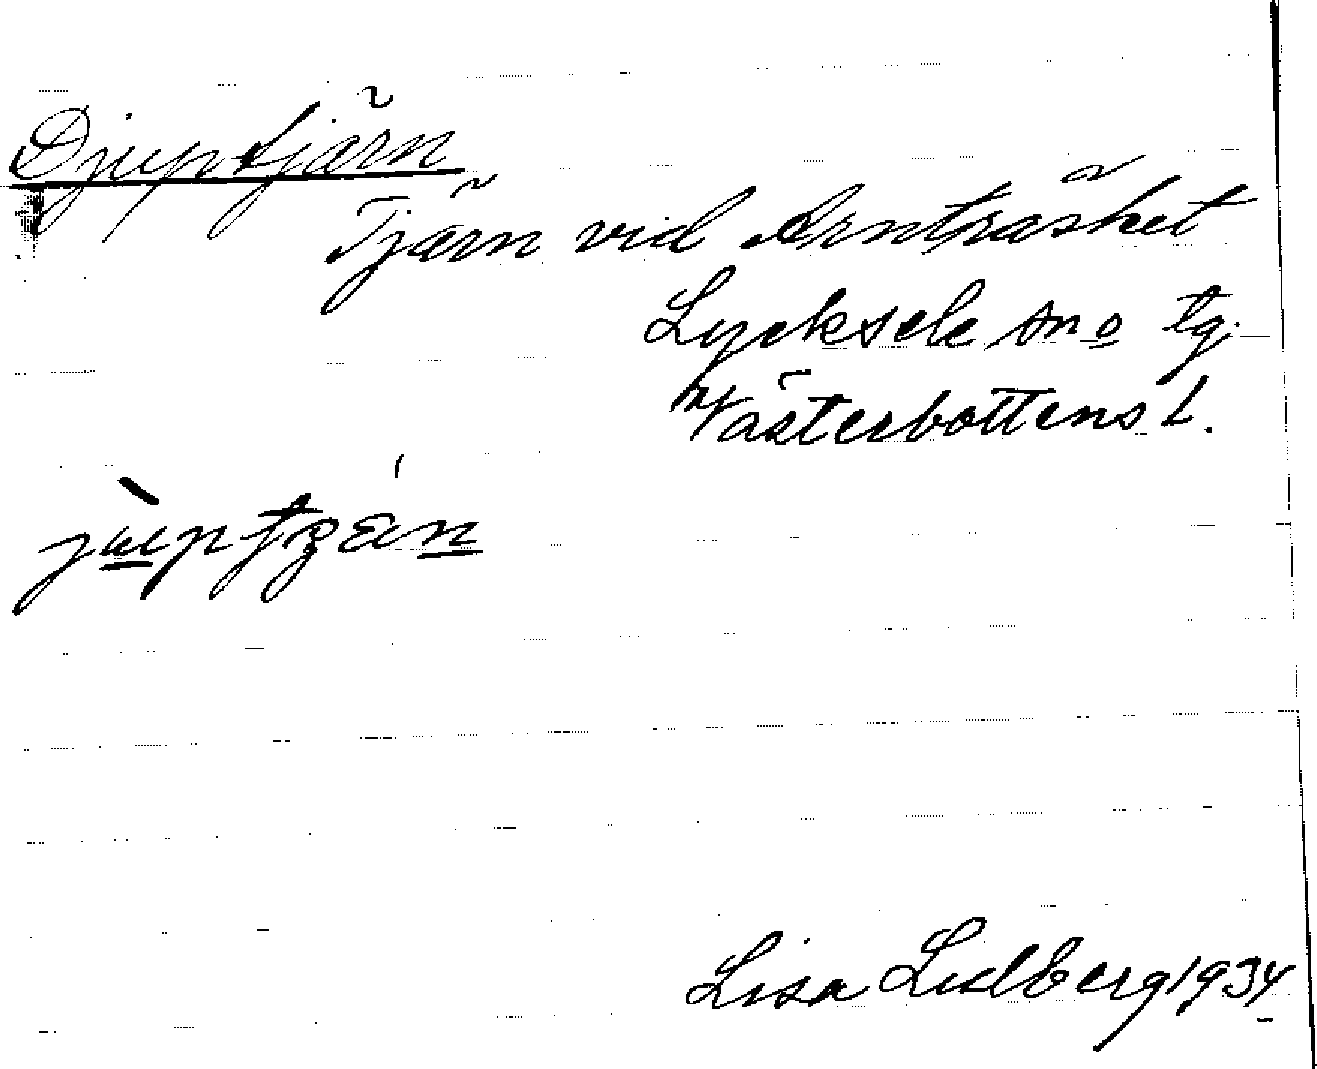 Djuptjärn
Tjärn vid Arnträsket
Lycksele sn o tg.
Västerbottens L.
Lisa Lidberg 1934